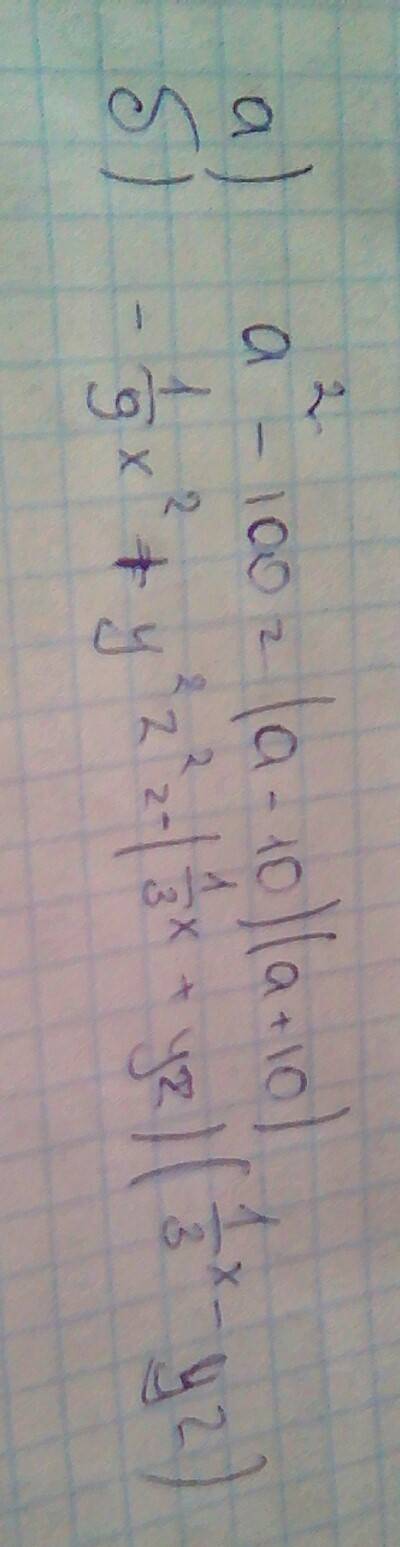 а) a² - 100 = (a - 10)(a + 10)
б) - 1/9 x² + y² z² = - (1/3 x + yz)(1/3 x - yz)